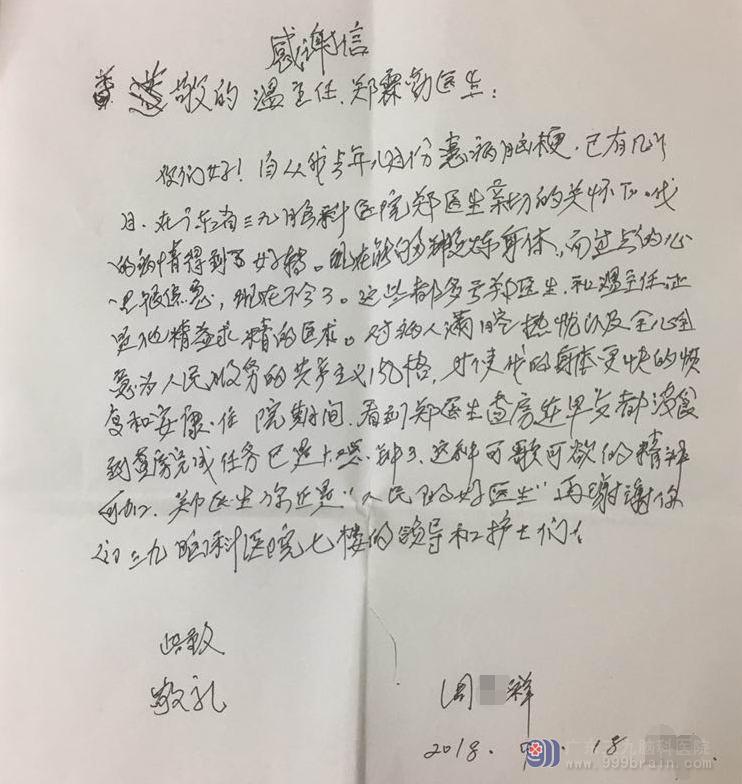 感谢信
尊敬的温主任、郑霖勤医生：
你们好！自从我去年八月份患病脑梗，已有几个
月，在广东省三九脑科医院郑医生亲切的关怀下，我
的病情得到了好转。现在能够锻炼身体，而过去的心
很急，现在不会了。这些都多亏郑医生和温主任，
是他精益求精的医术。对病人满腔热忱以及全心全
意为人民服务的共产主义风格，才使我的身体更快的恢
复和安康。住院期间，看到郑医生查房连早点都没食
到查房完成任务已是十二点钟了，这种可歌可欲的精神
可加。郑医生你还是“人民的好医生”再谢谢你
们三九脑科医院七楼的领导和护士们！
此致
敬礼
周 祥
2018. 18
广东三九脑科医院
www.999brain.com